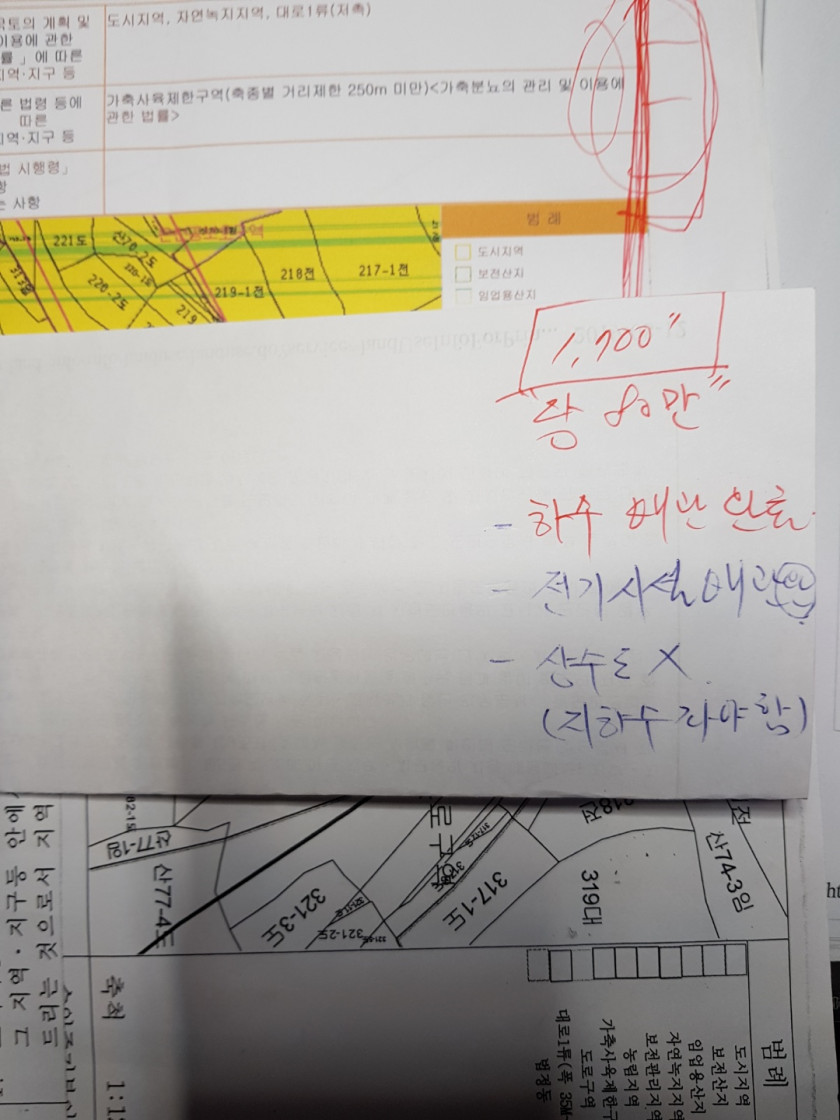 국토의 계획 및
이용에 관한
률」에 따른
지역·지구 등
도시지역, 자연녹지지역, 대로1류(저촉)
른 법령 등에
따른
지역·지구 등
가축사육제한구역(축종별 거리제한 250m 미만)<가축분뇨의 관리 및 이용에
관한 법률>
법 시행령」
항
는 사항
221도
산70-25
220-25
219
219-1전
218전
217-1전
범 례
도시지역
보전산지
임업용산지
1,700"
"당 80만"
- 하수 배관 완료
- 전기시설 배관
- 상수도 X
(지하수 파야함)
산77-1임
산77-4도
321-3도
321-2도
317-1도
319대
218전
산74-3임
로구
지역·지구등 안에
그 지역
드리는 것으로서
축척 1:1
범례
도시지역
보전산지
임업용산지
자연녹지지역
보전관리지역
농림지역
가축사육제한구
도로구역
대로1류(폭 35M
법정동